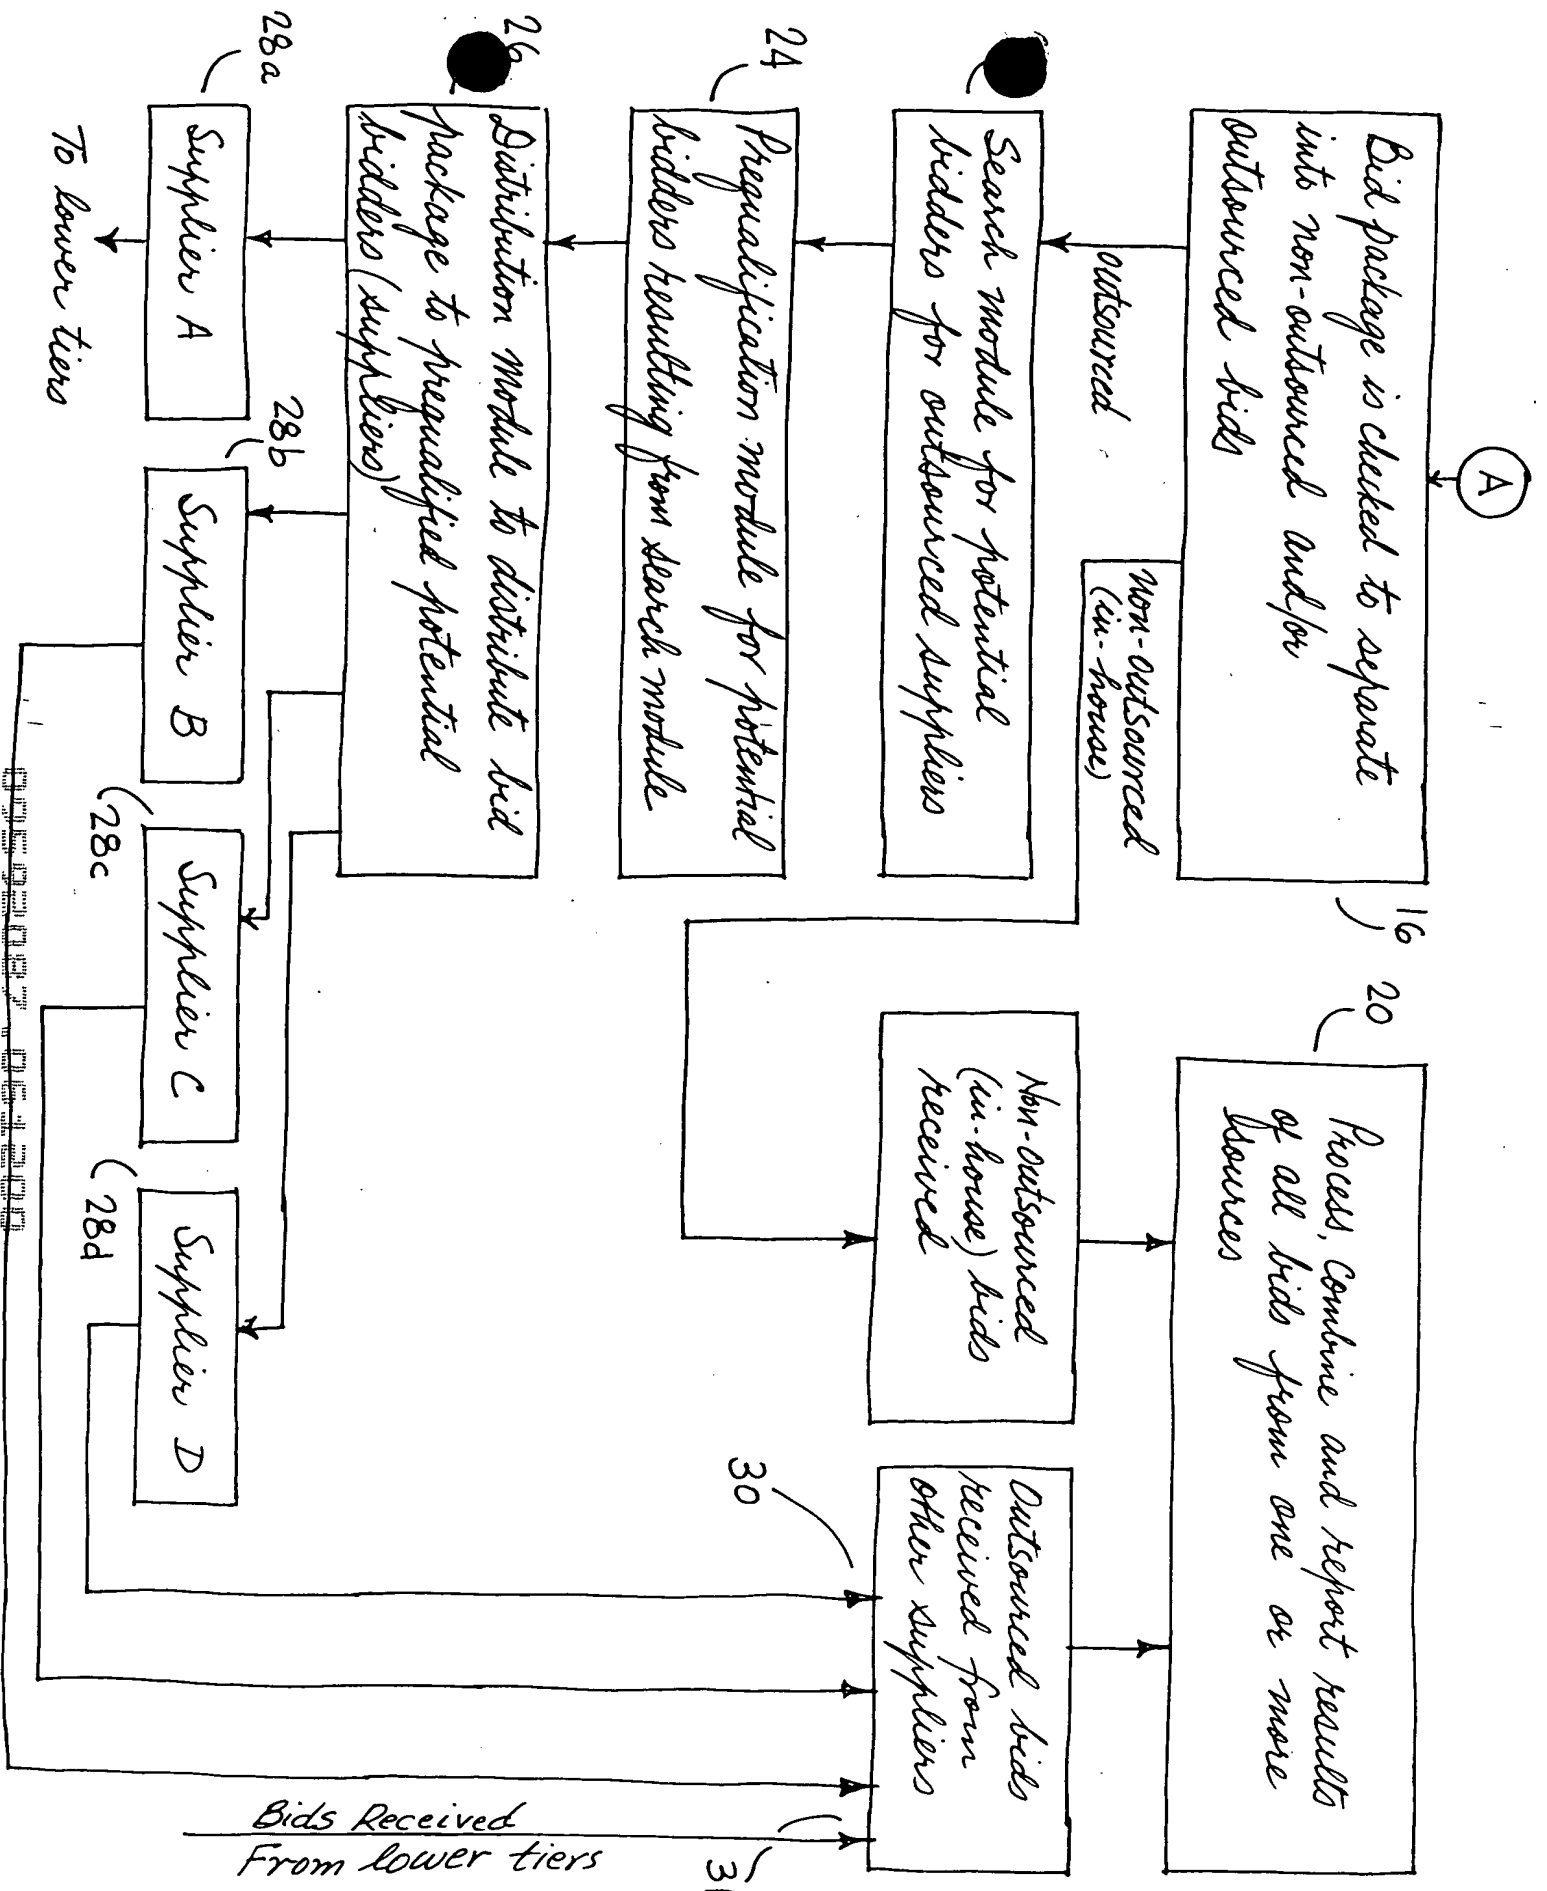 A
Bid package is checked to separate
into non-outsourced and/or
outsourced bids
16
outsourced
non-outsourced
(in-house)
Search module for potential
bidders for outsourced suppliers
24
Prequalification module for potential
bidders resulting from search module
26
Distribution module to distribute bid
package to prequalified potential
bidders (suppliers)
28a
Supplier A
To lower tiers
28b
Supplier B
28c
Supplier C
28d
Supplier D
20
Process, combine and report results
of all bids from one or more
sources
Non-outsourced
(in-house) bids
received
30
Outsourced bids
received from
other suppliers
Bids Received
From lower tiers
09592087.061200